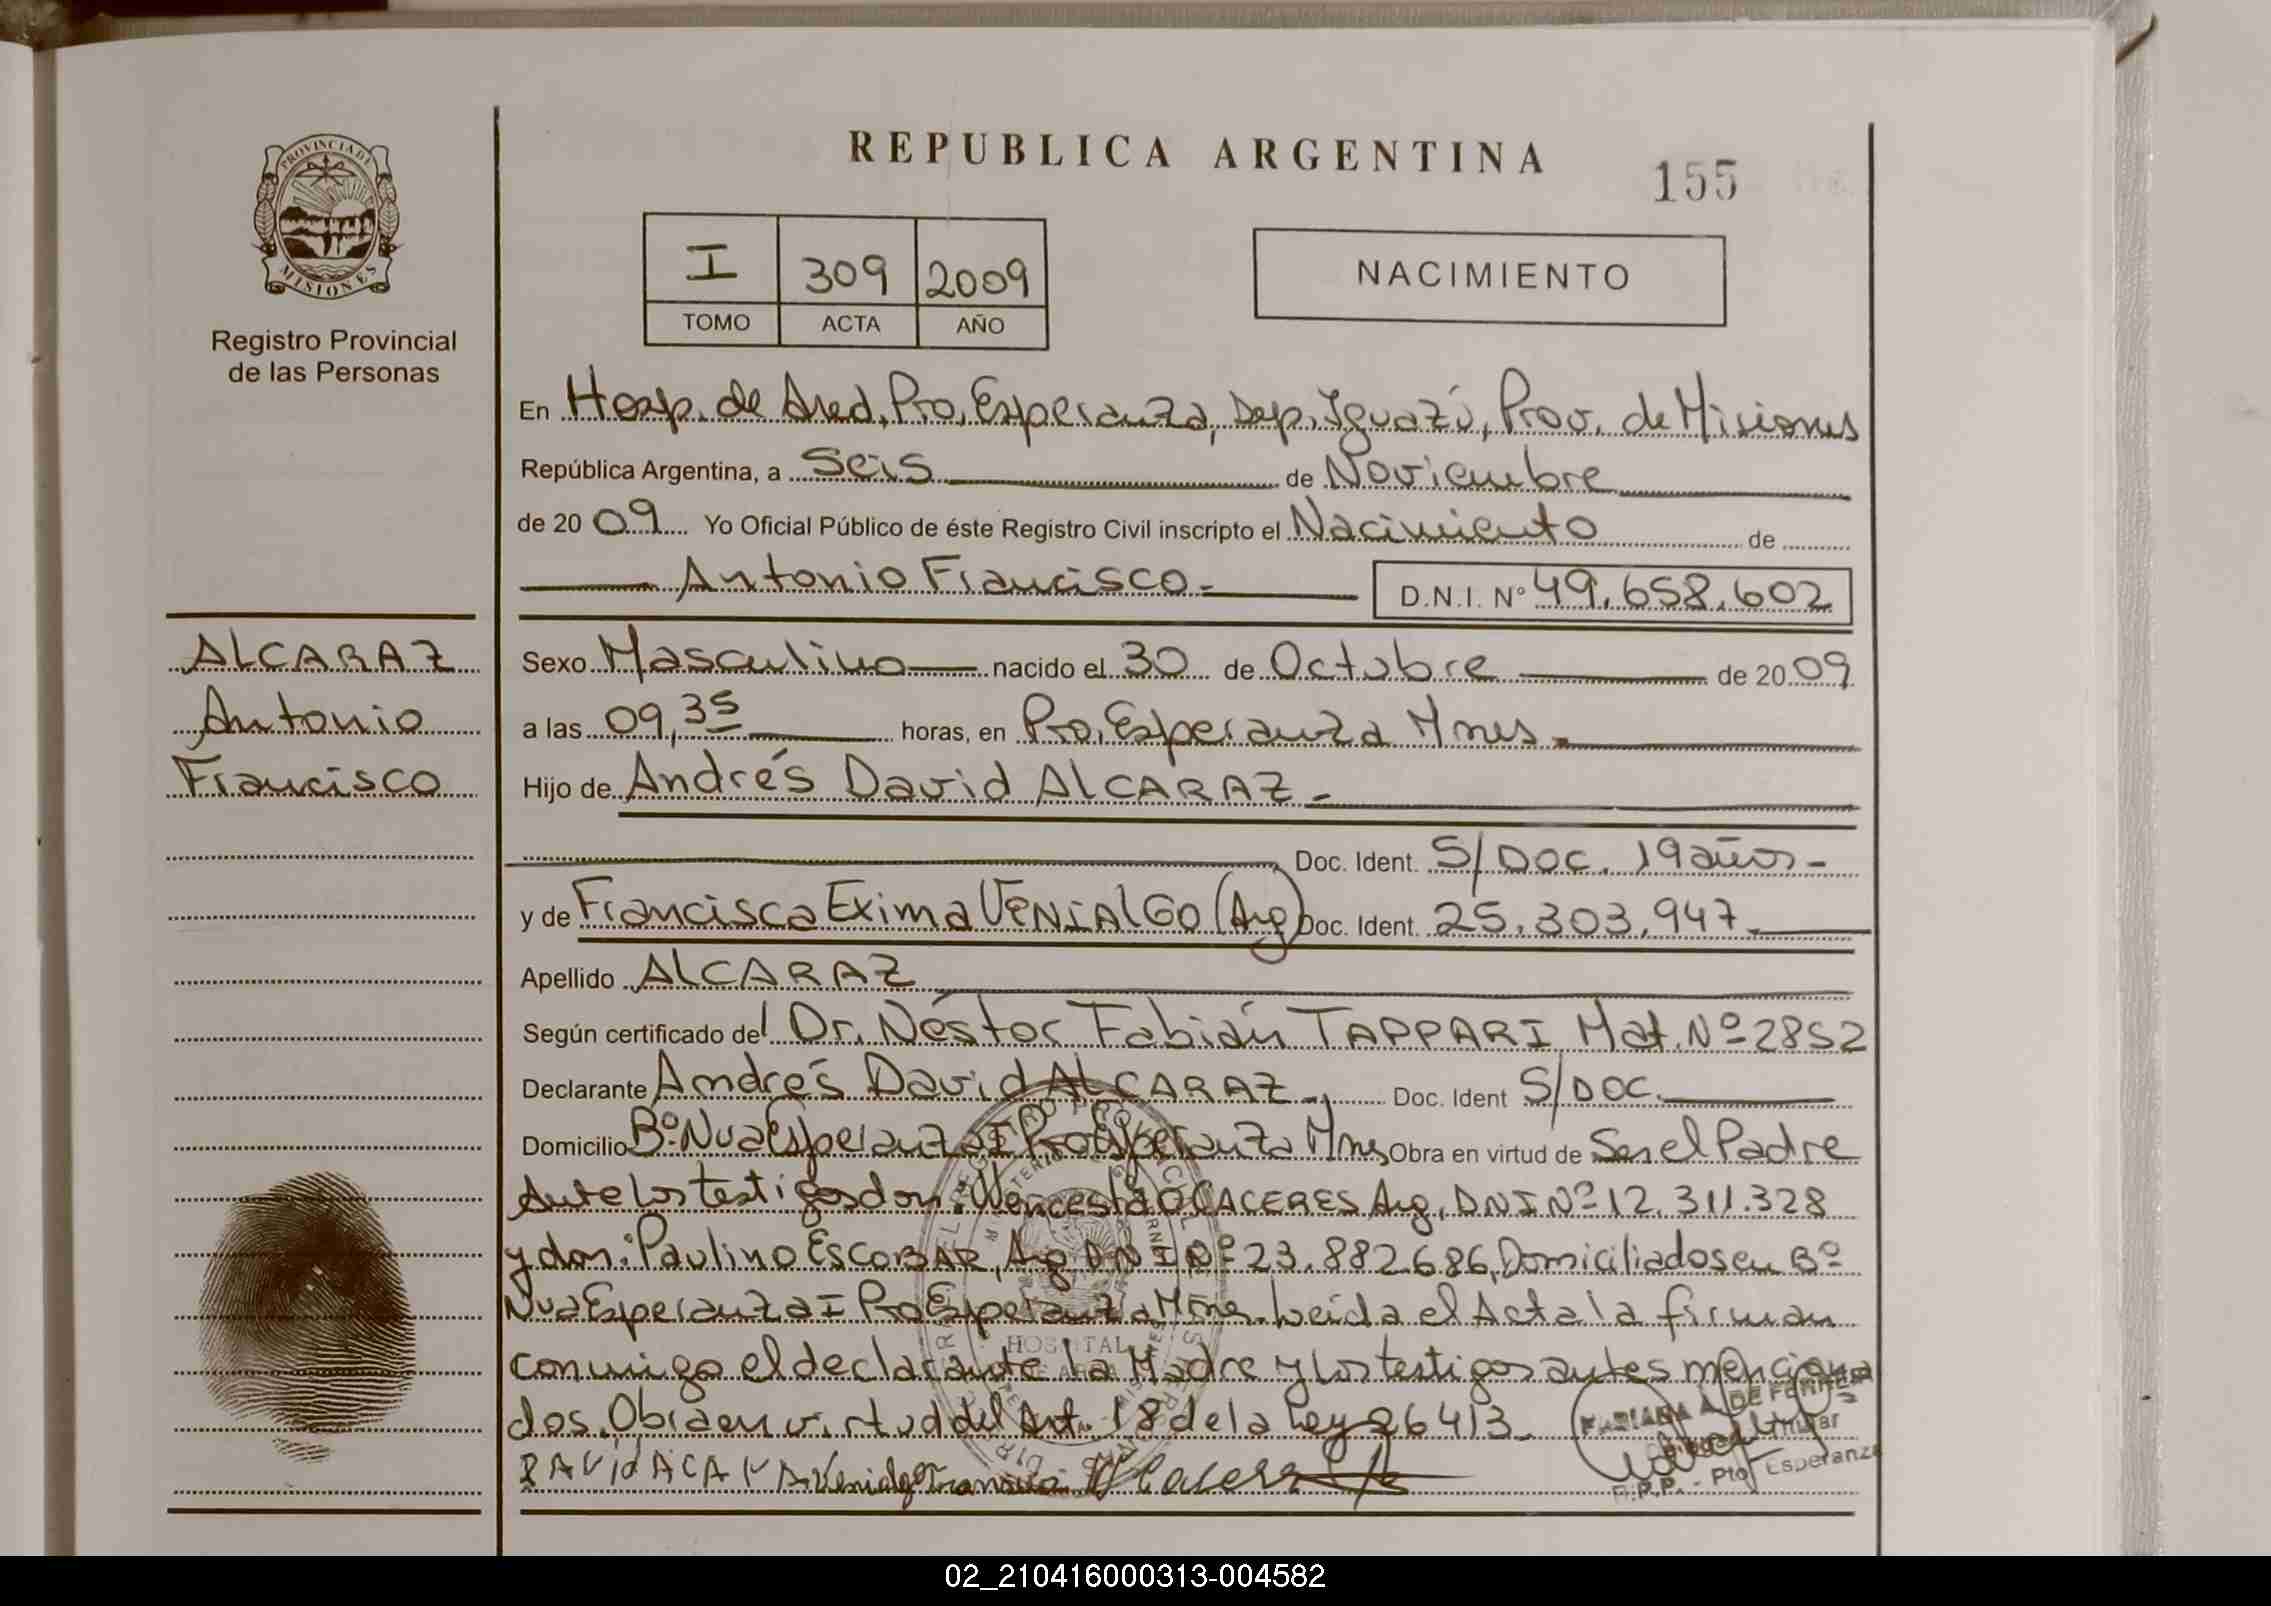 PROVINCIA DE
MISIONES
Registro Provincial
de las Personas
REPUBLICA ARGENTINA
155
I 309 2009
TOMO ACTA AÑO
NACIMIENTO
En Hosp. de Area, Pto, Esperanza, Dep, Iguazú, Prov. de Misiones
República Argentina, a Seis de Noviembre
de 20 09 Yo Oficial Público de éste Registro Civil inscripto el Nacimiento de
Antonio Francisco- D.N.I. Nº 49.658.602
ALCARAZ
Antonio
Francisco
Sexo Masculino nacido el 30 de Octubre de 20 09
a las 09,35 horas, en Pto, Esperanza Mnes-
Hijo de Andrés David ALCARAZ-
Doc. Ident. S/DOC. 19 años-
y de Francisca Exima VENIALGO (Arg) Doc. Ident. 25.303.947-
Apellido ALCARAZ
Según certificado del Dr. Néstor Fabián TAPPARI Mat. Nº 2852
Declarante Andrés David ALCARAZ-, Doc. Ident S/DOC.
Domicilio Bº Nva Esperanza I Pto Esperanza Mnes, Obra en virtud de Ser el Padre
Ante los testigos don: Wenceslao CACERES Arg, DNI Nº 12.311.328
y don: Paulino ESCOBAR, Arg DNI Nº 23.882.686, Domiciliados en Bº
Nva Esperanza I Pto Esperanza Mnes. Leida el Acta la firman
conmigo el declarante la Madre y los testigos antes menciona
dos. Obra en virtud del Art. 18 de la Ley 26413.
HOSPITAL
DE AREA
R.P.P. - Pto Esperanza
02_210416000313-004582